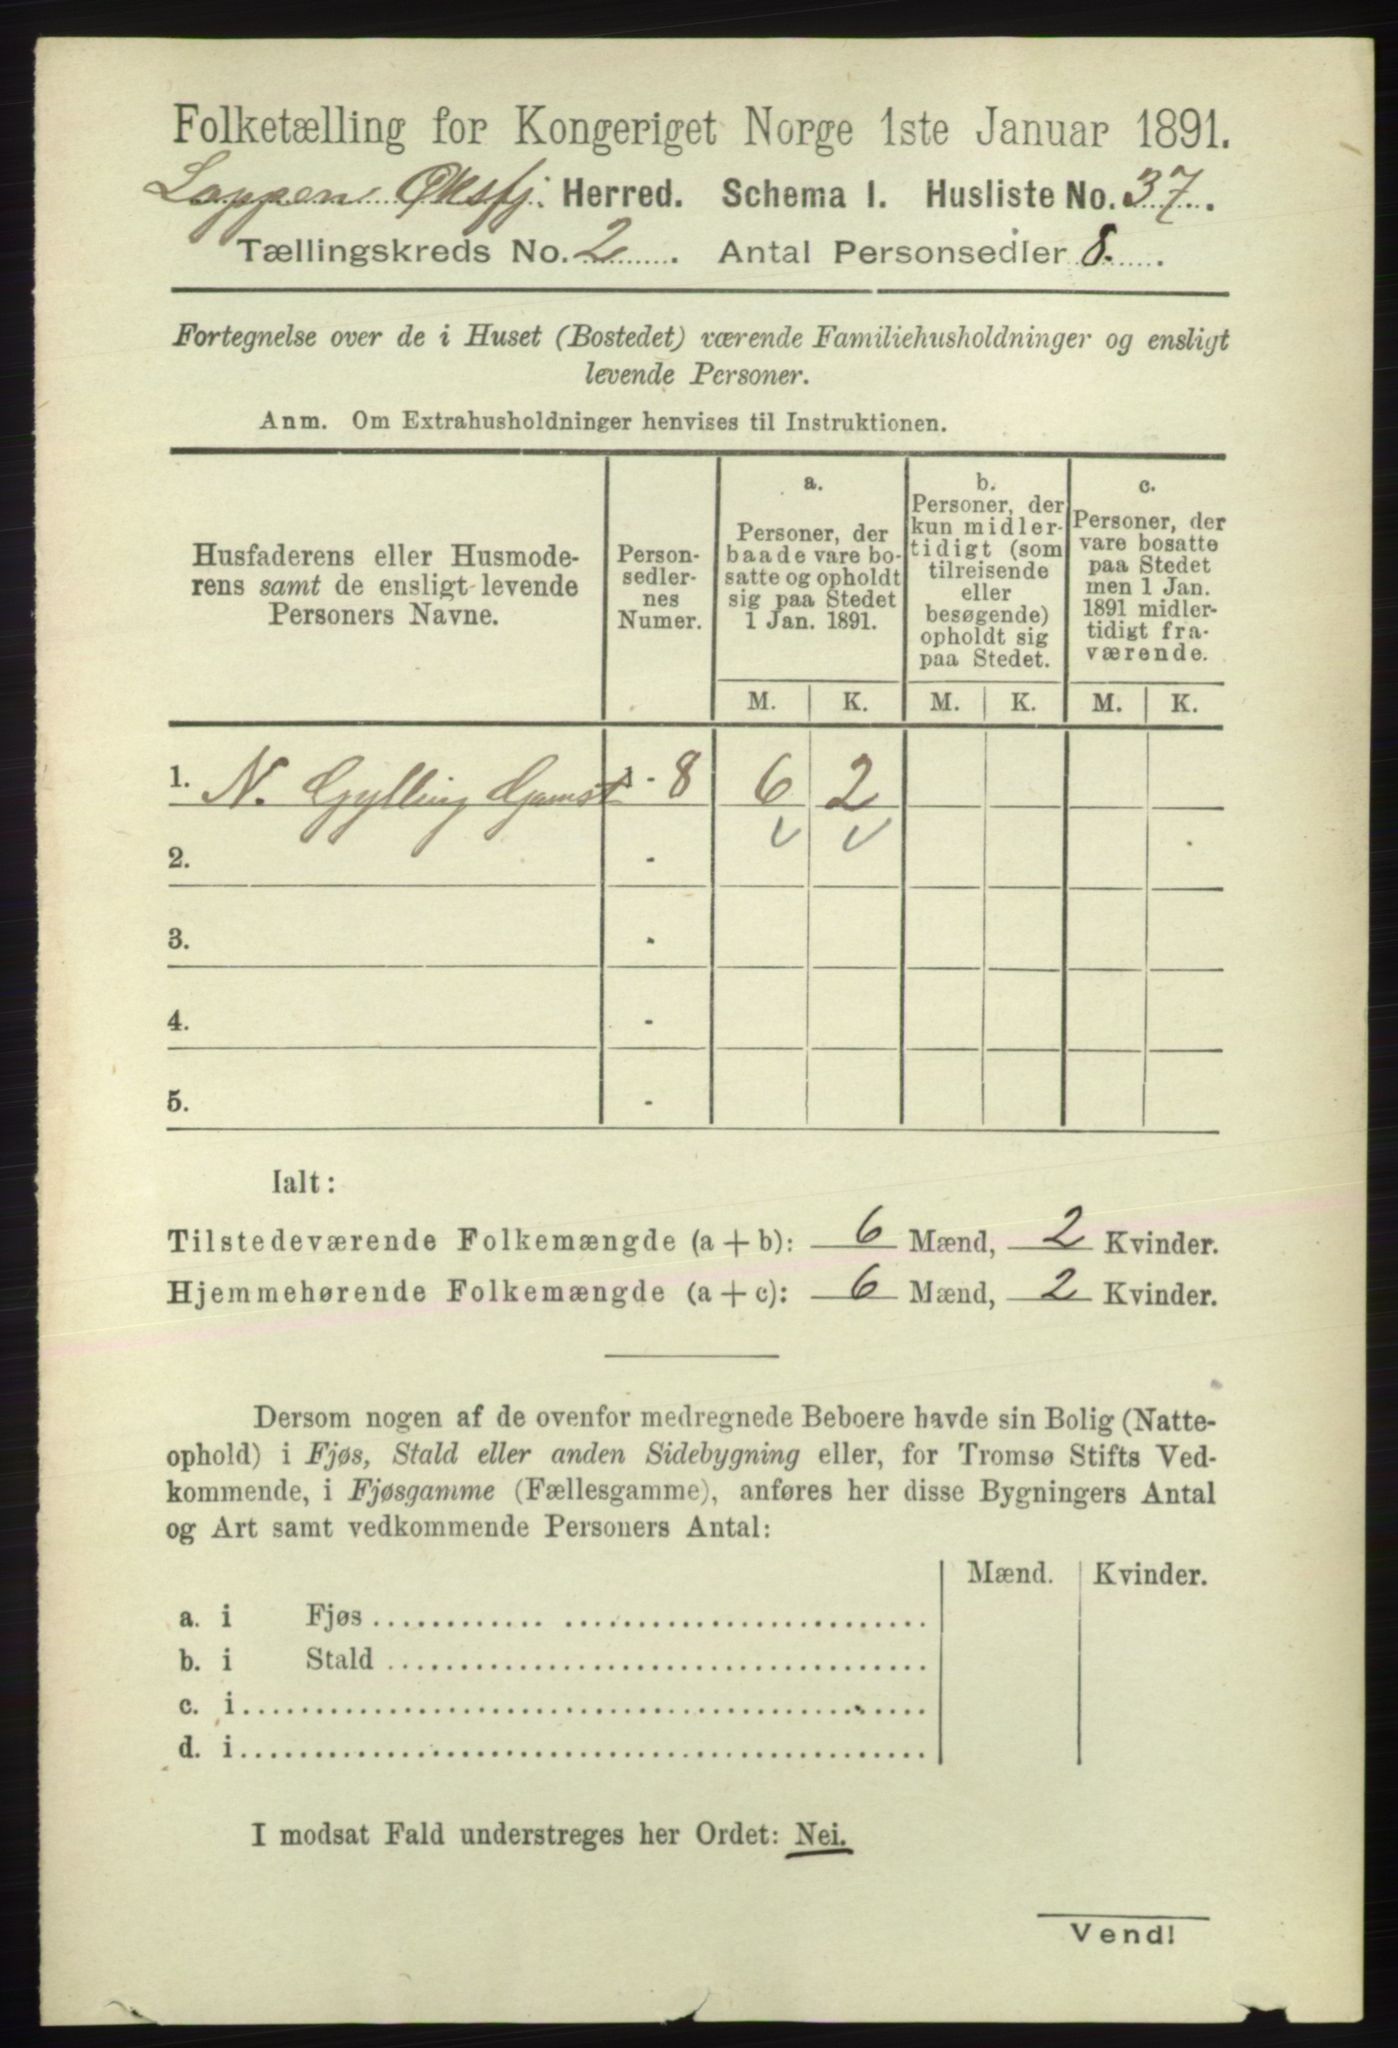 Folketælling for Kongeriget Norge 1ste Januar 1891.
Loppen Øksfj. Herred. Schema I. Husliste No. 37.
Tællingskreds No. 2. Antal Personsedler 8.
Fortegnelse over de i Huset (Bostedet) værende Familiehusholdninger og ensligt
levende Personer.
Anm. Om Extrahusholdninger henvises til Instruktionen.
Husfaderens eller Husmode-
rens samt de ensligt levende
Personers Navne.
Person-
sedler-
nes
Numer.
a.
Personer, der
baade vare bo-
satte og opholdt
sig paa Stedet
1 Jan. 1891.
b.
Personer, der
kun midler-
tidigt (som
tilreisende
eller
besøgende)
opholdt sig
paa Stedet.
c.
Personer, der
vare bosatte
paa Stedet
men 1 Jan.
1891 midler-
tidigt fra-
værende.
M. K. M. K. M. K.
1. N. Gylling Gamst 1 - 8 6 2
2. -
3. -
4. -
5. -
Ialt:
Tilstedeværende Folkemængde (a + b): 6 Mænd, 2 Kvinder.
Hjemmehørende Folkemængde (a + c): 6 Mænd, 2 Kvinder.
Dersom nogen af de ovenfor medregnede Beboere havde sin Bolig (Natte-
ophold) i Fjøs, Stald eller anden Sidebygning eller, for Tromsø Stifts Ved-
kommende, i Fjøsgamme (Fællesgamme), anføres her disse Bygningers Antal
og Art samt vedkommende Personers Antal:
Mænd. Kvinder.
a. i Fjøs
b. i Stald
c. i
d. i
I modsat Fald understreges her Ordet: Nei.
Vend!